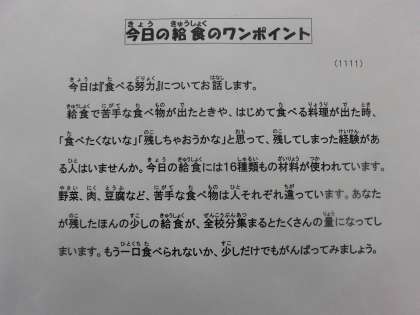 今日の給食のワンポイント
(1111)
今日は『食べる努力』についてお話します。
給食で苦手な食べ物が出たときや、はじめて食べる料理が出た時、
「食べたくないな」「残しちゃおうかな」と思って、残してしまった経験があ
る人はいませんか。今日の給食には16種類もの材料が使われています。
野菜、肉、豆腐など、苦手な食べ物は人それぞれ違っています。あなた
が残したほんの少しの給食が、全校分集まるとたくさんの量になってし
まいます。もう一口食べられないか、少しだけでもがんばってみましょう。